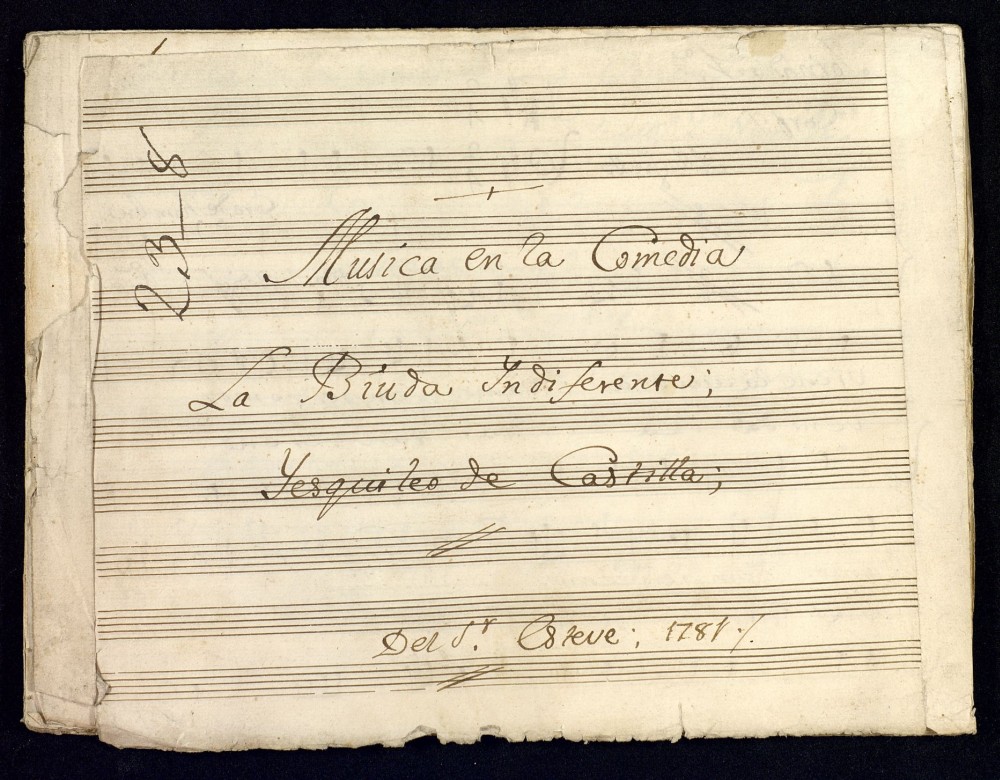 23-8
Musica en la Comedia
La Biuda Yndiferente;
Yesquileo de Castilla;
Del S.r Esteve; 1781